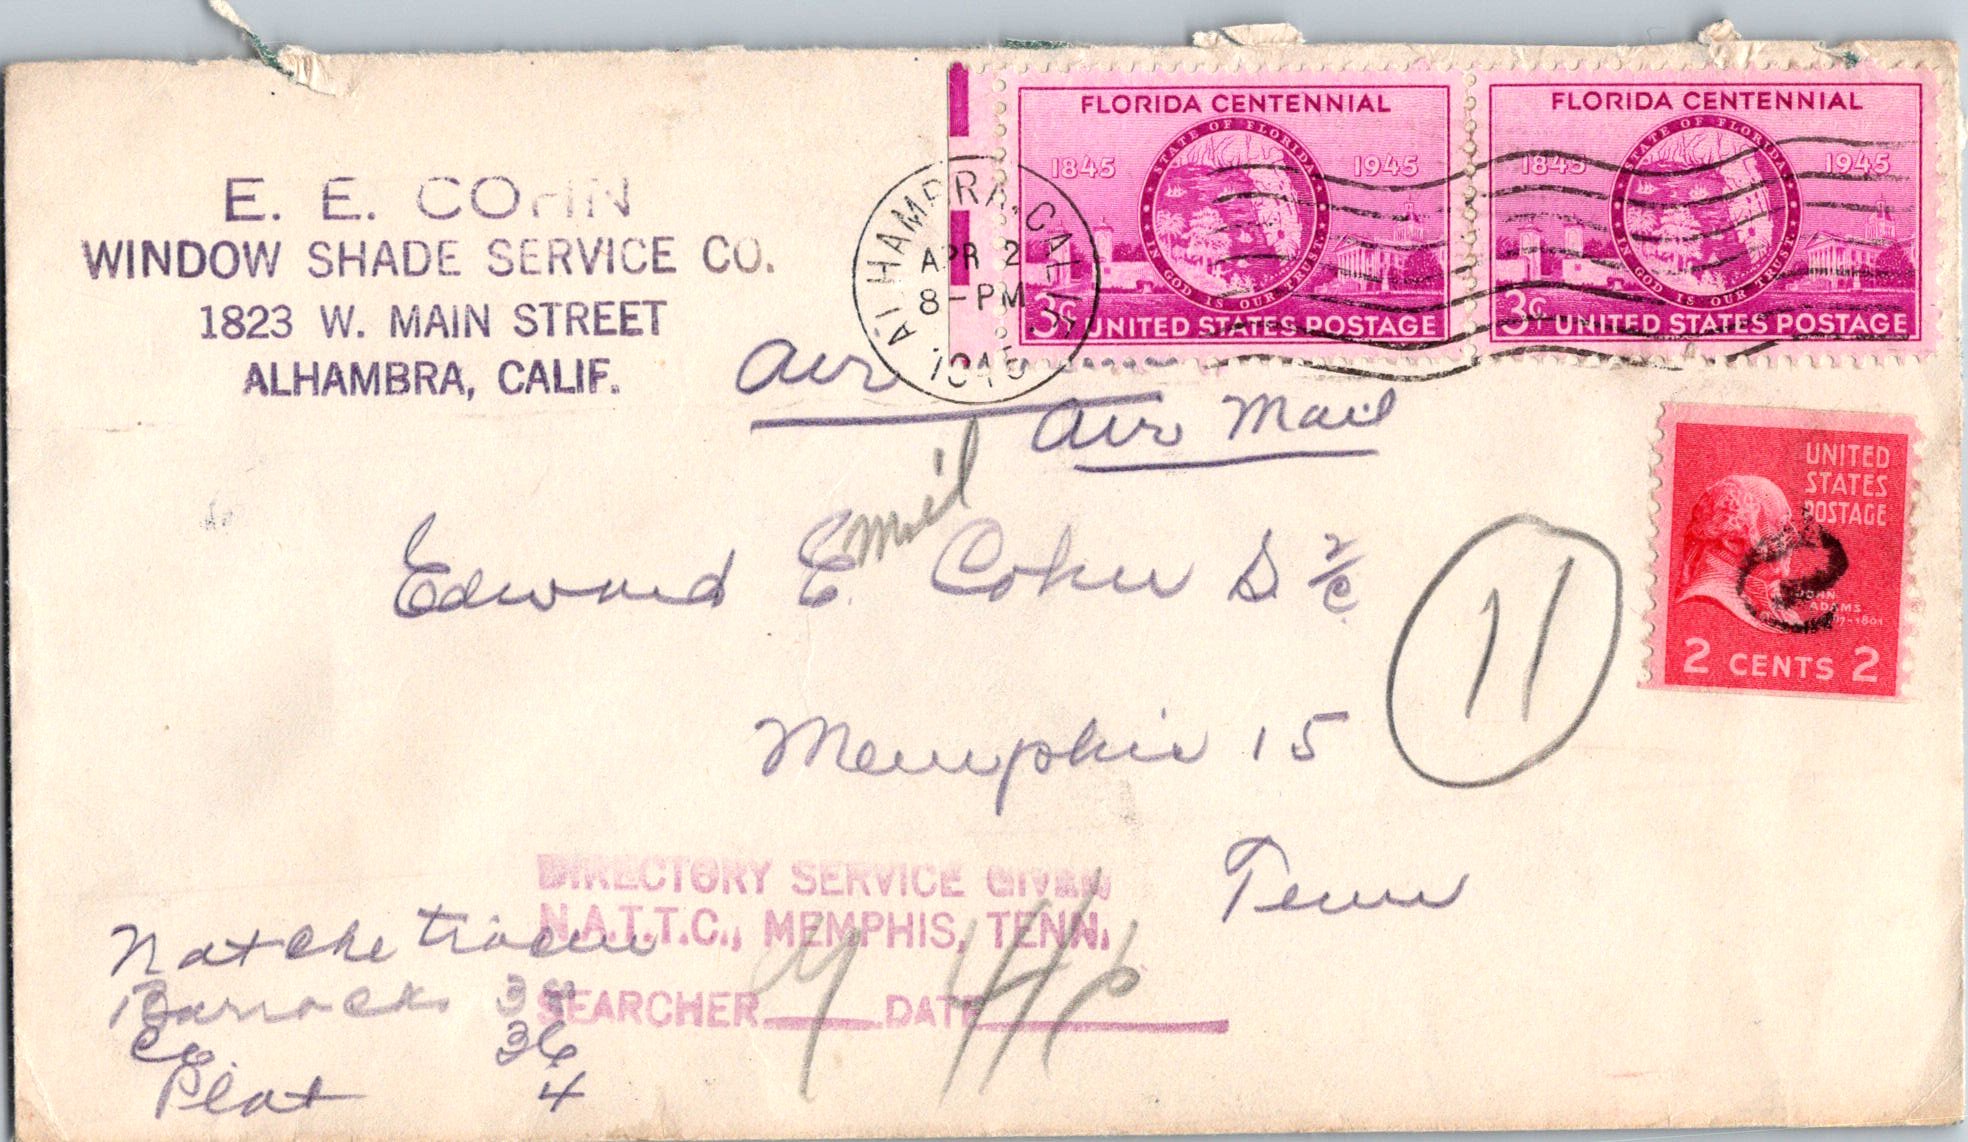 E. E. COHN
WINDOW SHADE SERVICE CO.
1823 W. MAIN STREET
ALHAMBRA, CALIF.
ALHAMBRA, CALIF.
APR 2
8-PM
FLORIDA CENTENNIAL
1845 1945
STATE OF FLORIDA
IN GOD IS OUR TRUST.
3¢ UNITED STATES POSTAGE
FLORIDA CENTENNIAL
1845 1945
STATE OF FLORIDA
IN GOD IS OUR TRUST.
3¢ UNITED STATES POSTAGE
Air
Mail
Air Mail
UNITED
STATES
POSTAGE
JOHN
ADAMS
2 CENTS 2
Edward E. Cohn S 2/c
11
Memphis 15
Tenn
DIRECTORY SERVICE GIVEN
N.A.T.T.C., MEMPHIS, TENN.
SEARCHER DATE
Barracks
Co. 36
Plat 4